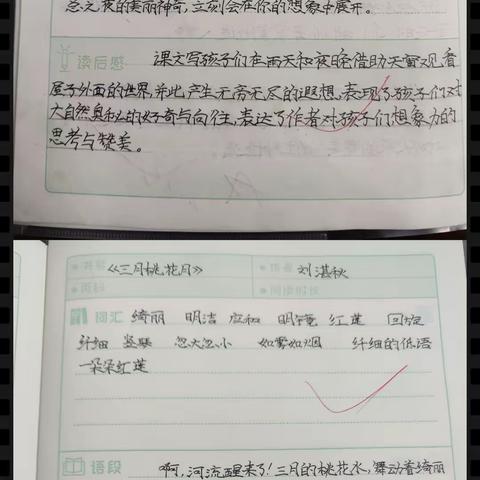 总之,夜的美丽神奇,立刻会在你的想象中展开。
读后感 课文写孩子们在雨天和夜晚借助天窗观看
屋子外面的世界,并此产生无穷无尽的遐想,表现了孩子们对
大自然奥秘的好奇与向往,表达了作者对孩子们想象力的
思考与赞美。
书名 《三月桃花月》 作者 刘湛秋
页码 阅读时长
词汇 绮丽 明洁 应和 明镜 红莲 回旋
纤细 竖琴 忽大忽小 如雾如烟 纤细的低语
一朵朵红莲
语段 啊,河流醒来了!三月的桃花水,舞动着绮丽